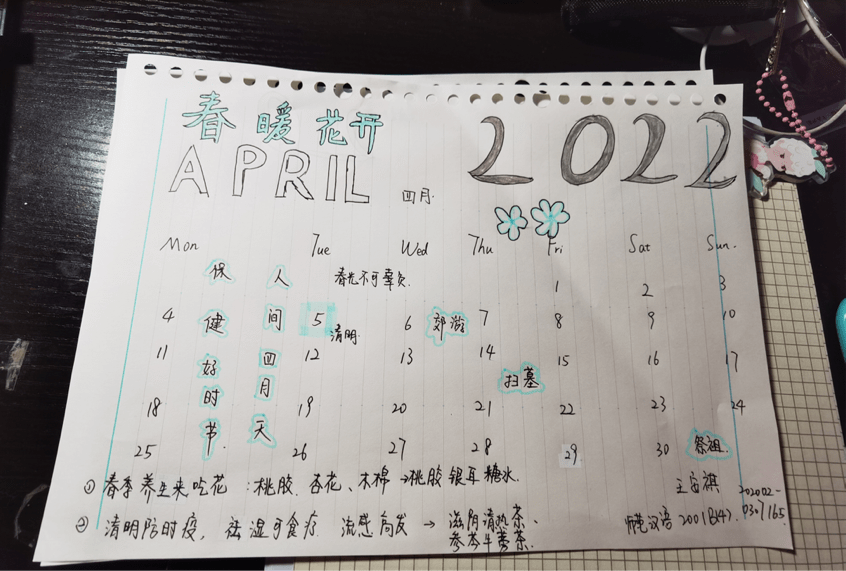 春暖花开
APRIL 四月 2022
Mon Tue Wed Thu Fri Sat Sun.
保健好时节
人间四月天
春光不可辜负.
1 2 3
4 5 清明 6 郊游 7 8 9 10
11 12 13 14 15 16 17
扫墓
18 19 20 21 22 23 24
25 26 27 28 29 30 祭祖.
① 春季养生来吃花:桃胶、杏花、木棉→桃胶银耳糖水.
② 清明防时疫,祛湿可食疗 流感高发→滋阴清热茶、
参芩牛蒡茶.
202002-
0307165
汉语2001B(4).